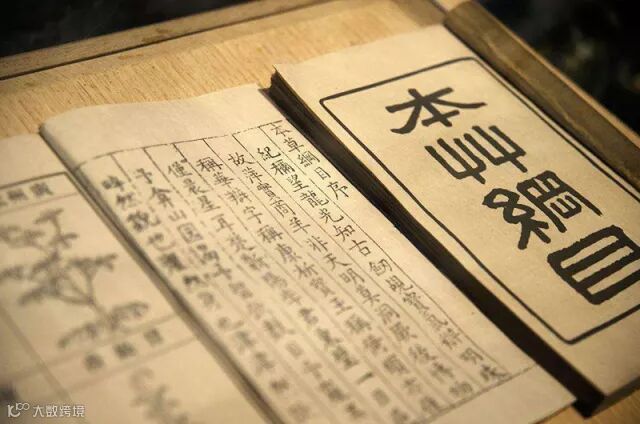 本艸綱目
本草綱目序
紀稱望龍光知古劒覘寶氣辨明珠
故萍實商羊非天明莫洞厥後博物
稱華辨字稱康析寶玉稱倚頓亦僅
僅晨星耳楚
予弇山園謁予留飲數日予
睟然貌也癯然
大数跨境